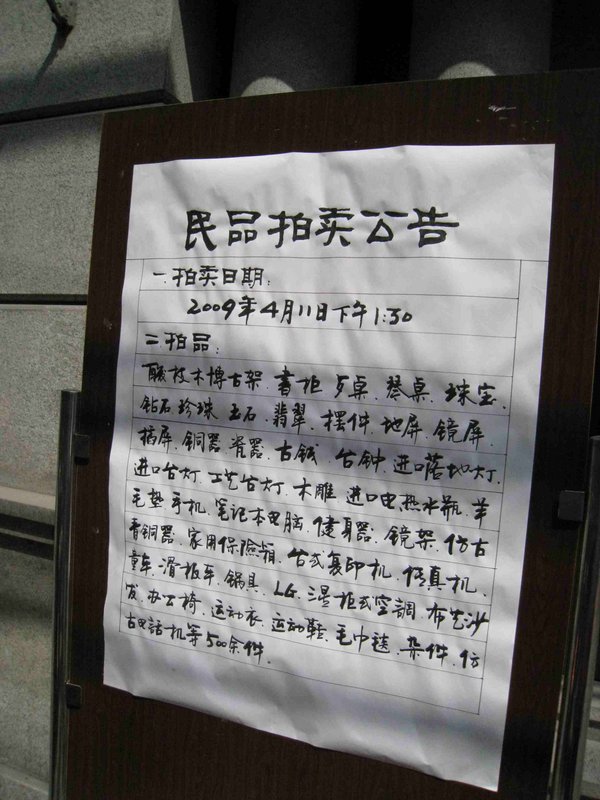 民品拍卖公告
一.拍卖日期:
2009年4月11日下午1:30
二.拍品:
酸枝木博古架、书柜、方桌、琴桌、珠宝、
钻石、珍珠、玉石、翡翠、摆件、地屏、镜屏、
插屏、铜器、瓷器、古钱、台钟、进口落地灯、
进口台灯、工艺台灯、木雕、进口电热水瓶、羊
毛垫、手机、笔记本电脑、健身器、镜架、仿古
青铜器、家用保险箱、台式复印机、传真机、
童车、滑板车、锅具、LG、柜式空調、布艺沙
发、办公椅、运动衣、运动鞋、毛巾毯、杂件、仿
古电話机等500余件.